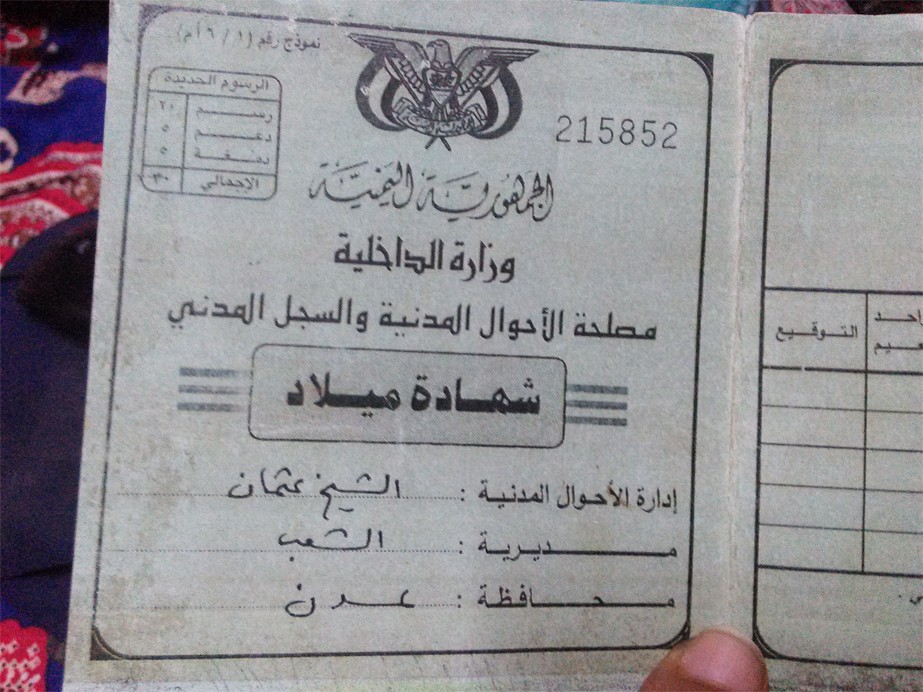 نموذج رقم (١ / ٦ أ م)
الرسوم الجديدة
رسم ٢٠
دعم ٥
دمغة ٥
الإجمالي ٣٠
215852
الجمهورية اليمنية
وزارة الداخلية
مصلحة الأحوال المدنية والسجل المدني
شهادة ميلاد
إدارة الأحوال المدنية : الشيخ عثمان
مديرية : الشعب
محافظة : عدن
التوقيع